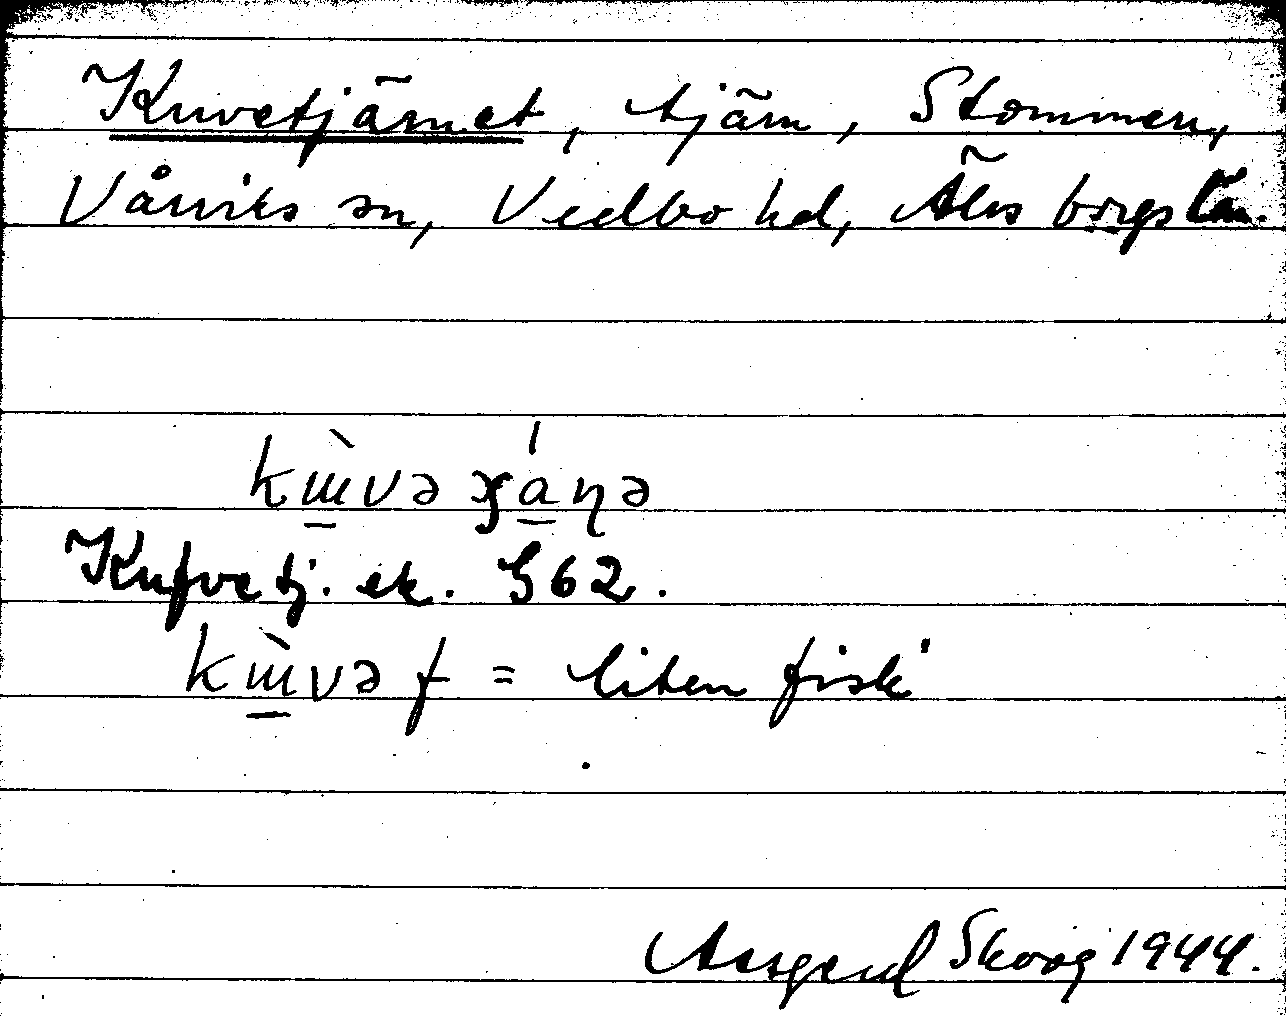 Kuvetjärnet, tjärn, Stommen,
Vårviks sn, Vedbo hd, Älvsborgs län.
kɯ̀və ɂánə
Kufvetj. ek. §62.
kɯ̀və f = liten fisk
Skoog 1944.